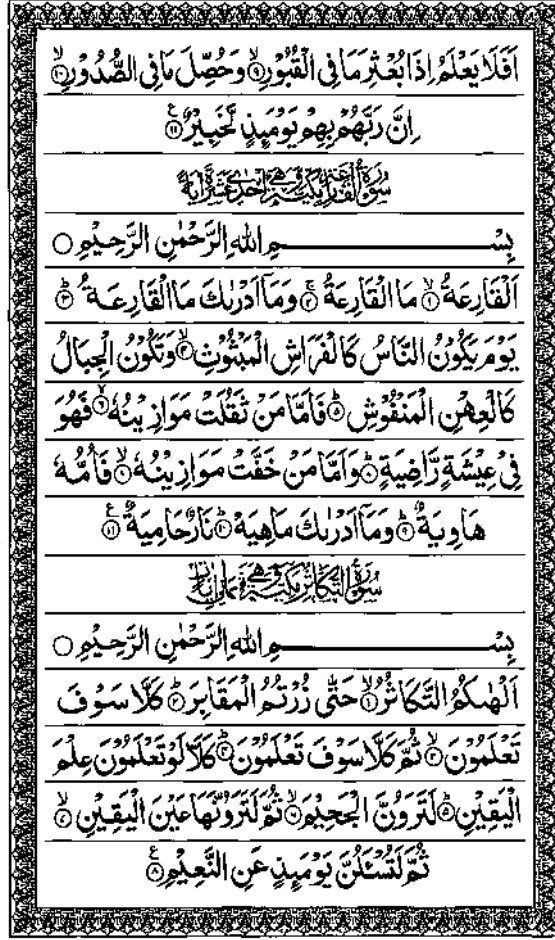 اَفَلَا يَعْلَمُ اِذَا بُعْثِرَ مَا فِى الْقُبُوْرِ ۙ﴿۹﴾ وَحُصِّلَ مَا فِى الصُّدُوْرِ ۙ﴿۱۰﴾
اِنَّ رَبَّهُمْ بِهِمْ يَوْمَىِٕذٍ لَّخَبِيْرٌ ﴿۱۱﴾ ع
سُوْرَةُ الْقَارِعَةِ مَكِّيَّةٌ وَّهِىَ اِحْدٰى عَشَرَةَ اٰيَةً
بِسْـــــــــــمِ اللهِ الرَّحْمٰنِ الرَّحِيْمِ ○
اَلْقَارِعَةُ ۙ﴿۱﴾ مَا الْقَارِعَةُ ۚ﴿۲﴾ وَمَاۤ اَدْرٰىكَ مَا الْقَارِعَةُ ؕ﴿۳﴾
يَوْمَ يَكُوْنُ النَّاسُ كَالْفَرَاشِ الْمَبْثُوْثِ ۙ﴿۴﴾ وَتَكُوْنُ الْجِبَالُ
كَالْعِهْنِ الْمَنْفُوْشِ ؕ﴿۵﴾ فَاَمَّا مَنْ ثَقُلَتْ مَوَازِيْنُهٗ ۙ﴿۶﴾ فَهُوَ
فِىْ عِيْشَةٍ رَّاضِيَةٍ ؕ﴿۷﴾ وَاَمَّا مَنْ خَفَّتْ مَوَازِيْنُهٗ ۙ﴿۸﴾ فَاُمُّهٗ
هَاوِيَةٌ ؕ﴿۹﴾ وَمَاۤ اَدْرٰىكَ مَاهِيَهْ ؕ﴿۱۰﴾ نَارٌ حَامِيَةٌ ﴿۱۱﴾ ع
سُوْرَةُ التَّكَاثُرِ مَكِّيَّةٌ وَّهِىَ ثَمَانِىْ اٰيَاتٍ
بِسْـــــــــــمِ اللهِ الرَّحْمٰنِ الرَّحِيْمِ ○
اَلْهٰىكُمُ التَّكَاثُرُ ۙ﴿۱﴾ حَتّٰى زُرْتُمُ الْمَقَابِرَ ؕ﴿۲﴾ كَلَّا سَوْفَ
تَعْلَمُوْنَ ۙ﴿۳﴾ ثُمَّ كَلَّا سَوْفَ تَعْلَمُوْنَ ؕ﴿۴﴾ كَلَّا لَوْ تَعْلَمُوْنَ عِلْمَ
الْيَقِيْنِ ؕ﴿۵﴾ لَتَرَوُنَّ الْجَحِيْمَ ۙ﴿۶﴾ ثُمَّ لَتَرَوُنَّهَا عَيْنَ الْيَقِيْنِ ۙ﴿۷﴾
ثُمَّ لَتُسْـَٔلُنَّ يَوْمَىِٕذٍ عَنِ النَّعِيْمِ ﴿۸﴾ ع